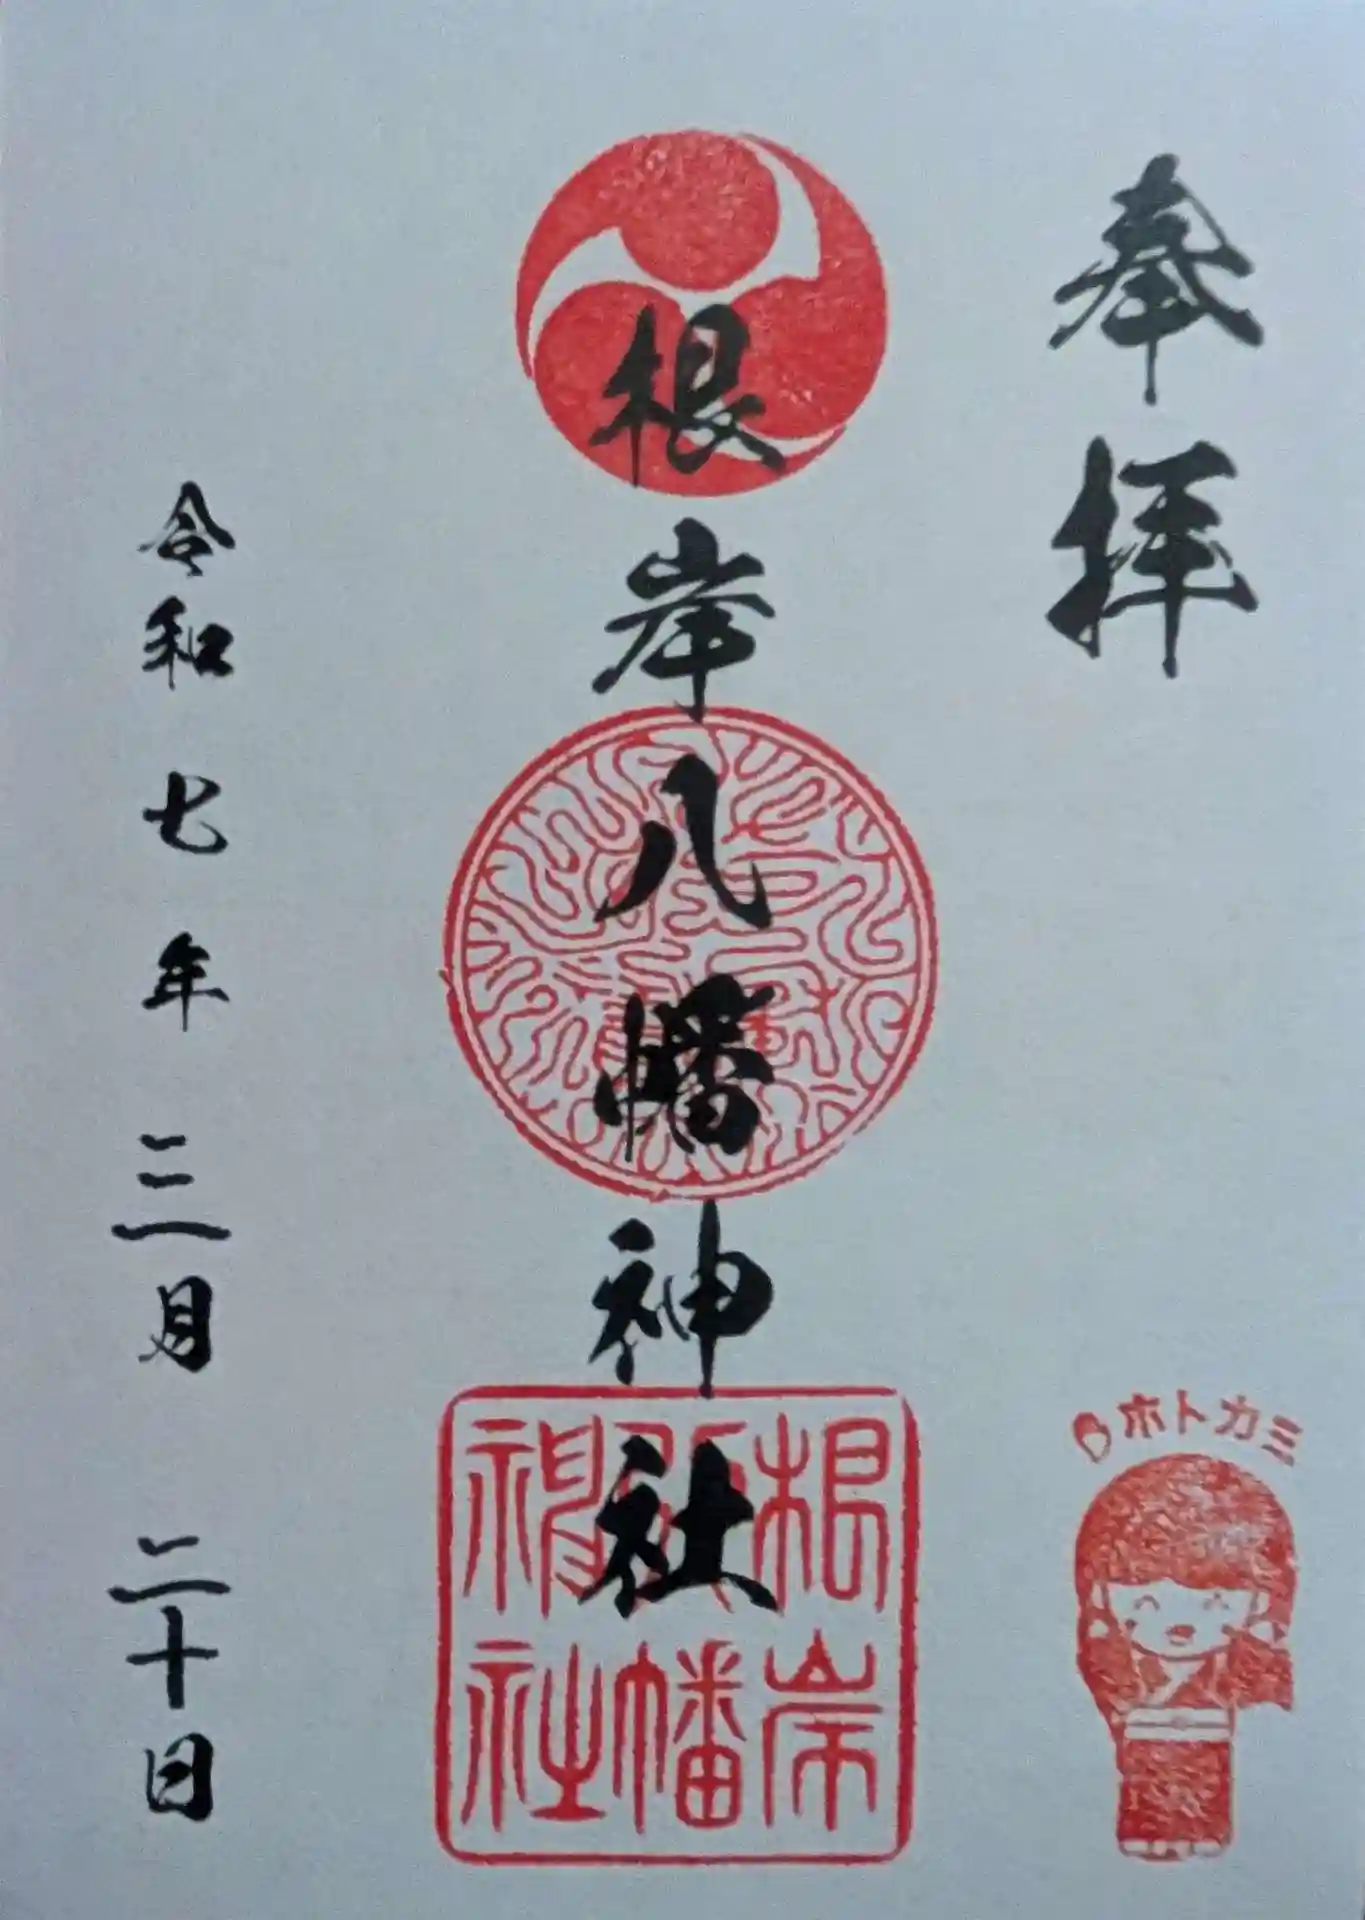 奉拝
根岸八幡神社
令和七年三月二十日
根岸八幡神社
ホトカミ